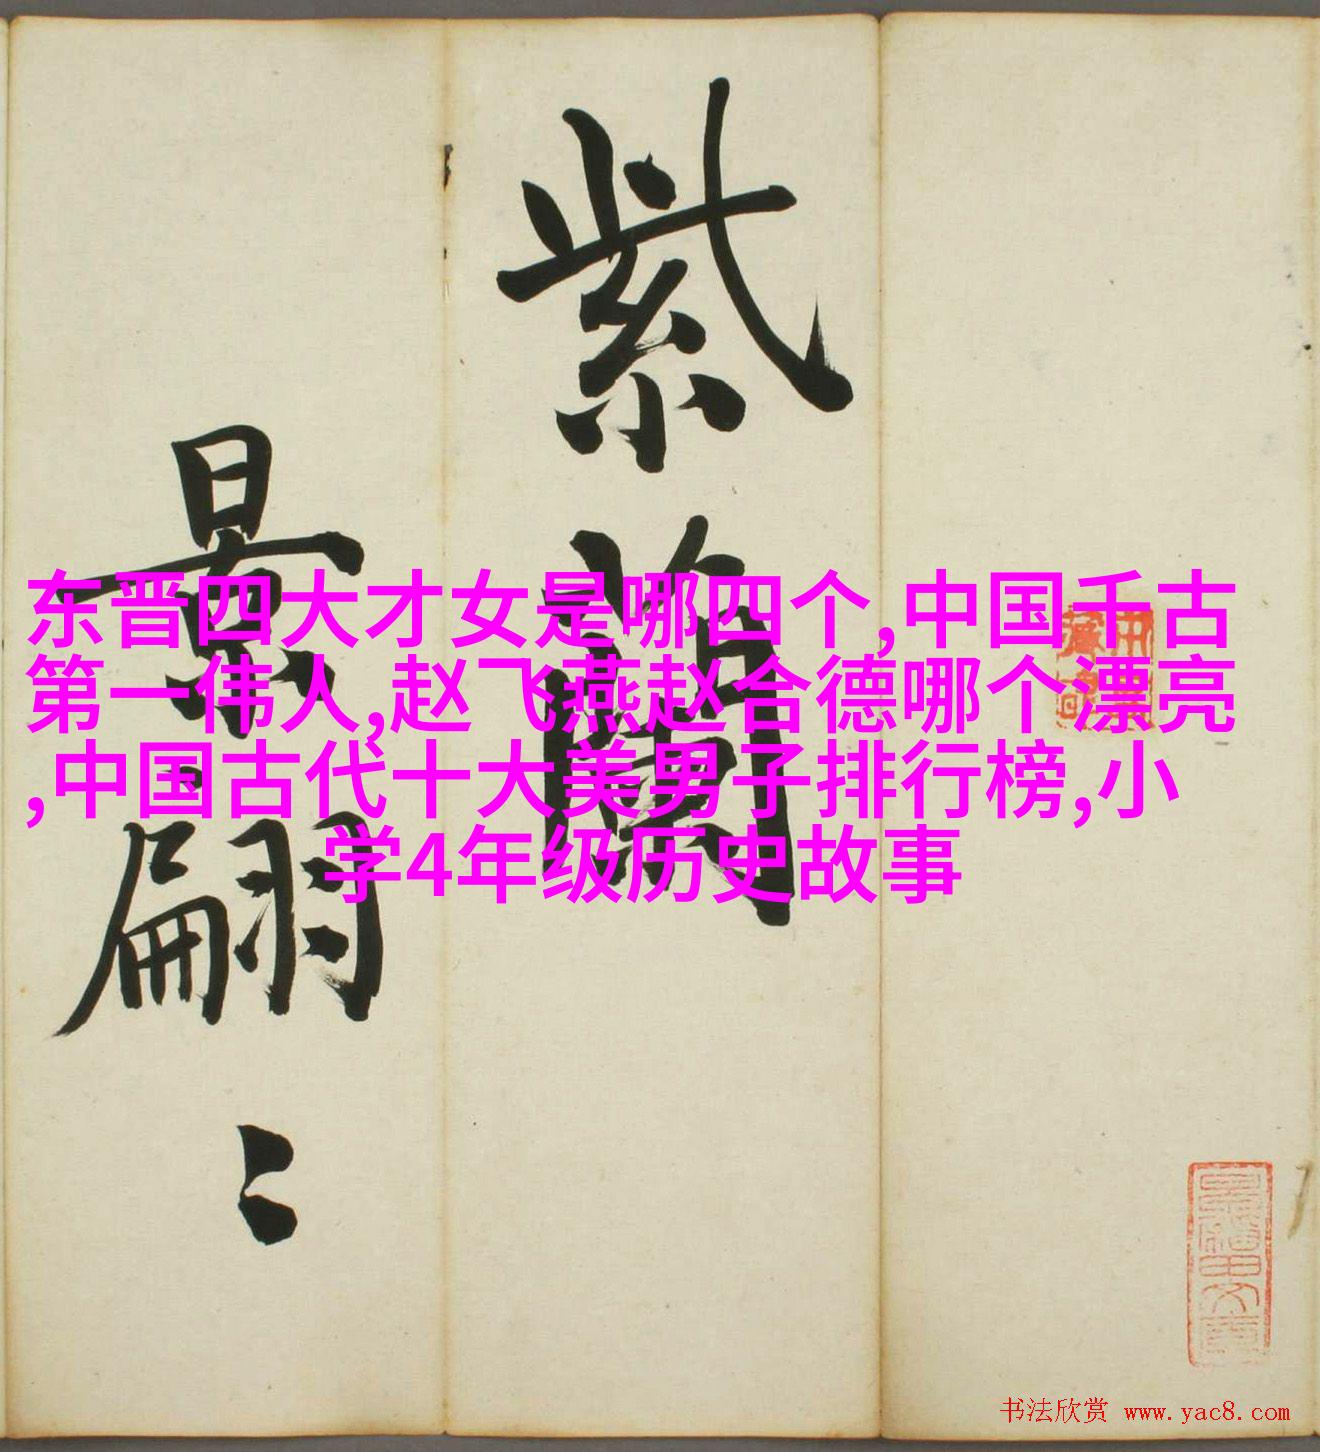 东晋四大才女是哪四个,中国千古
第一伟人,赵飞燕赵合德哪个漂亮
,中国古代十大美男子排行榜,小
学4年级历史故事
紫蘭
景翩〻
书法欣赏 www.yac8.com